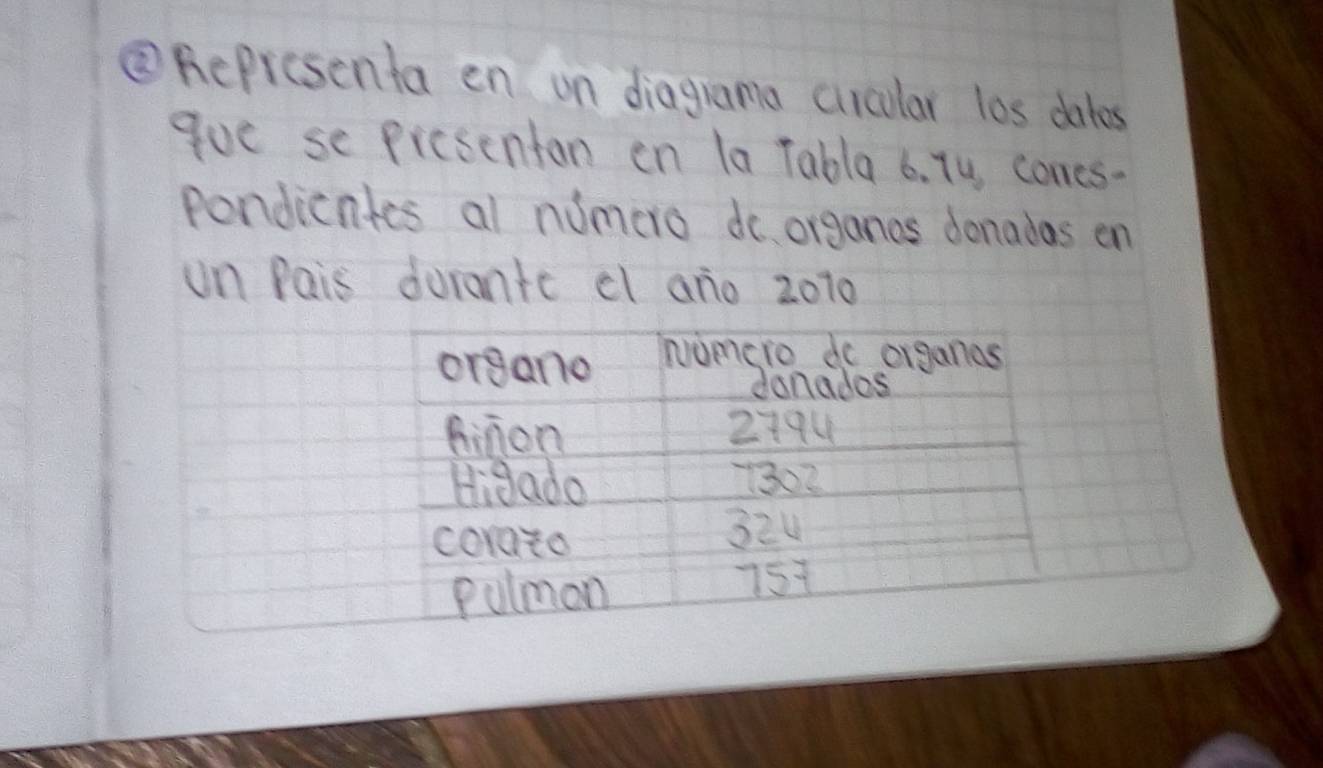 ② Representa en un diagrama circular los datos
que se presentan en la Tabla 6.14, corres-
pondientes al número de organos donados en
un Pais durante el año 2010
organo número de organos
donados
Riñon 2194
Higado 1302
corazo 324
pulmon 157